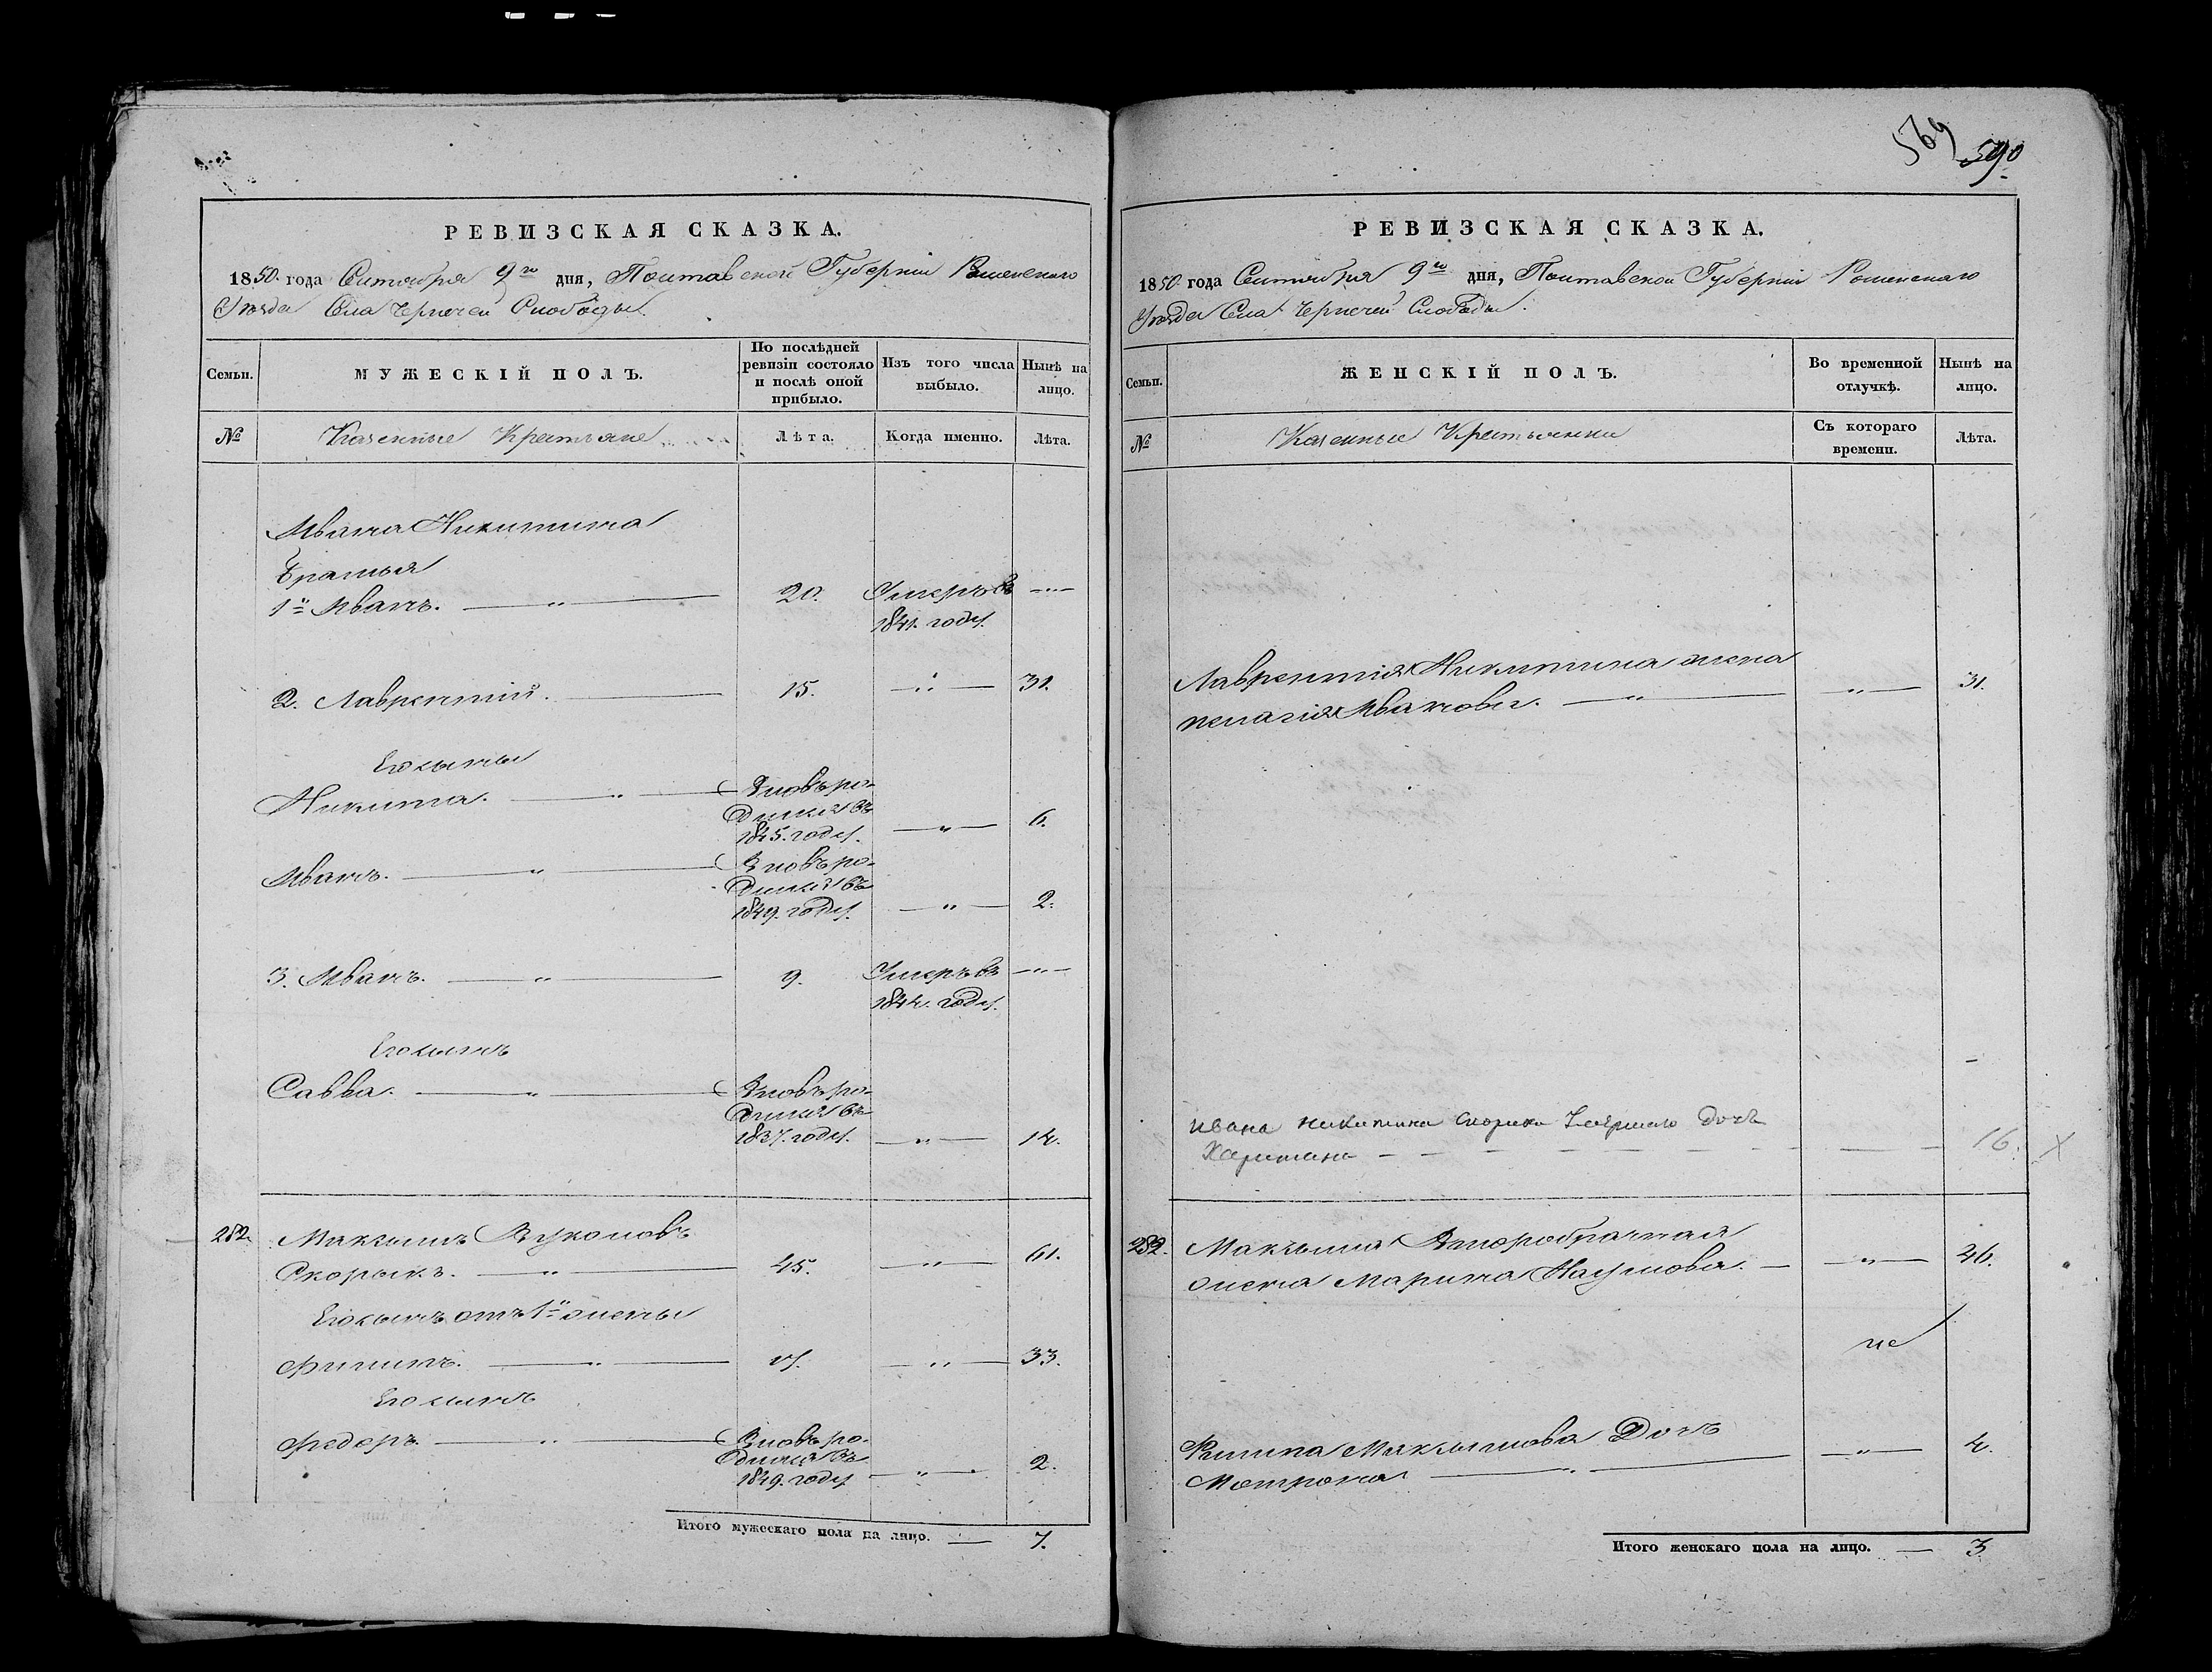 569
590
РЕВИЗСКАЯ СКАЗКА.
1850. года Сентября 9го дня, Полтавской Губерніи Роменскаго
Уѣзда Села Чернечей Слободы.
Семьи.
МУЖЕСКІЙ ПОЛЪ.
По послѣдней ревизіи состояло и послѣ оной прибыло.
Изъ того числа выбыло.
Нынѣ на лицо.
№
Казенные Крестьяне
Лѣта.
Когда именно.
Лѣта.
Ивана Никитина
братья
1й Иванъ. — " — 20. Умеръ въ — " —
1841. году.
2. Лаврентий. — 15. — " — 31.
Его сыны
Никита. — " — Вновь ро-
дился въ
1845. году. — " — 6.
Иванъ. — " — Вновь ро-
дился въ
1849. году. — " — 2.
3. Иванъ. — " — 9. Умеръ въ — " —
1844. году.
Его сынъ
Савва. — " — Вновь ро-
дился въ
1837. году. — " — 14.
282. Максимъ Вуколовъ
Скорыкъ. — " — 45. — " — 61.
Его сынъ отъ 1й жены
Филипъ. — " — 17. — " — 33.
Его сынъ
Федоръ. — " — Вновь ро-
дился въ
1849. году — " — 2.
Итого мужескаго пола на лицо. — 7.
РЕВИЗСКАЯ СКАЗКА.
1850. года Сентября 9го дня, Полтавской Губерніи Роменскаго
Уѣзда Села Чернечей Слободы.
Семьи.
ЖЕНСКІЙ ПОЛЪ.
Во временной отлучкѣ.
Нынѣ на лицо.
№
Казенные Крестьянки
Съ котораго времени.
Лѣта.
Лаврентія Никитина жена
пелагія Иванова. — " — — " — 31.
Ивана Никитина Скорика Умершаго дочь
Харитина — — — — 16. X
282. Максыма Второбрачная
жена Марина Наумова. — — " — 46.
не
Филипа Максымова Дочь
Мотрона — " — — " — 4.
Итого женскаго пола на лицо. — 3.